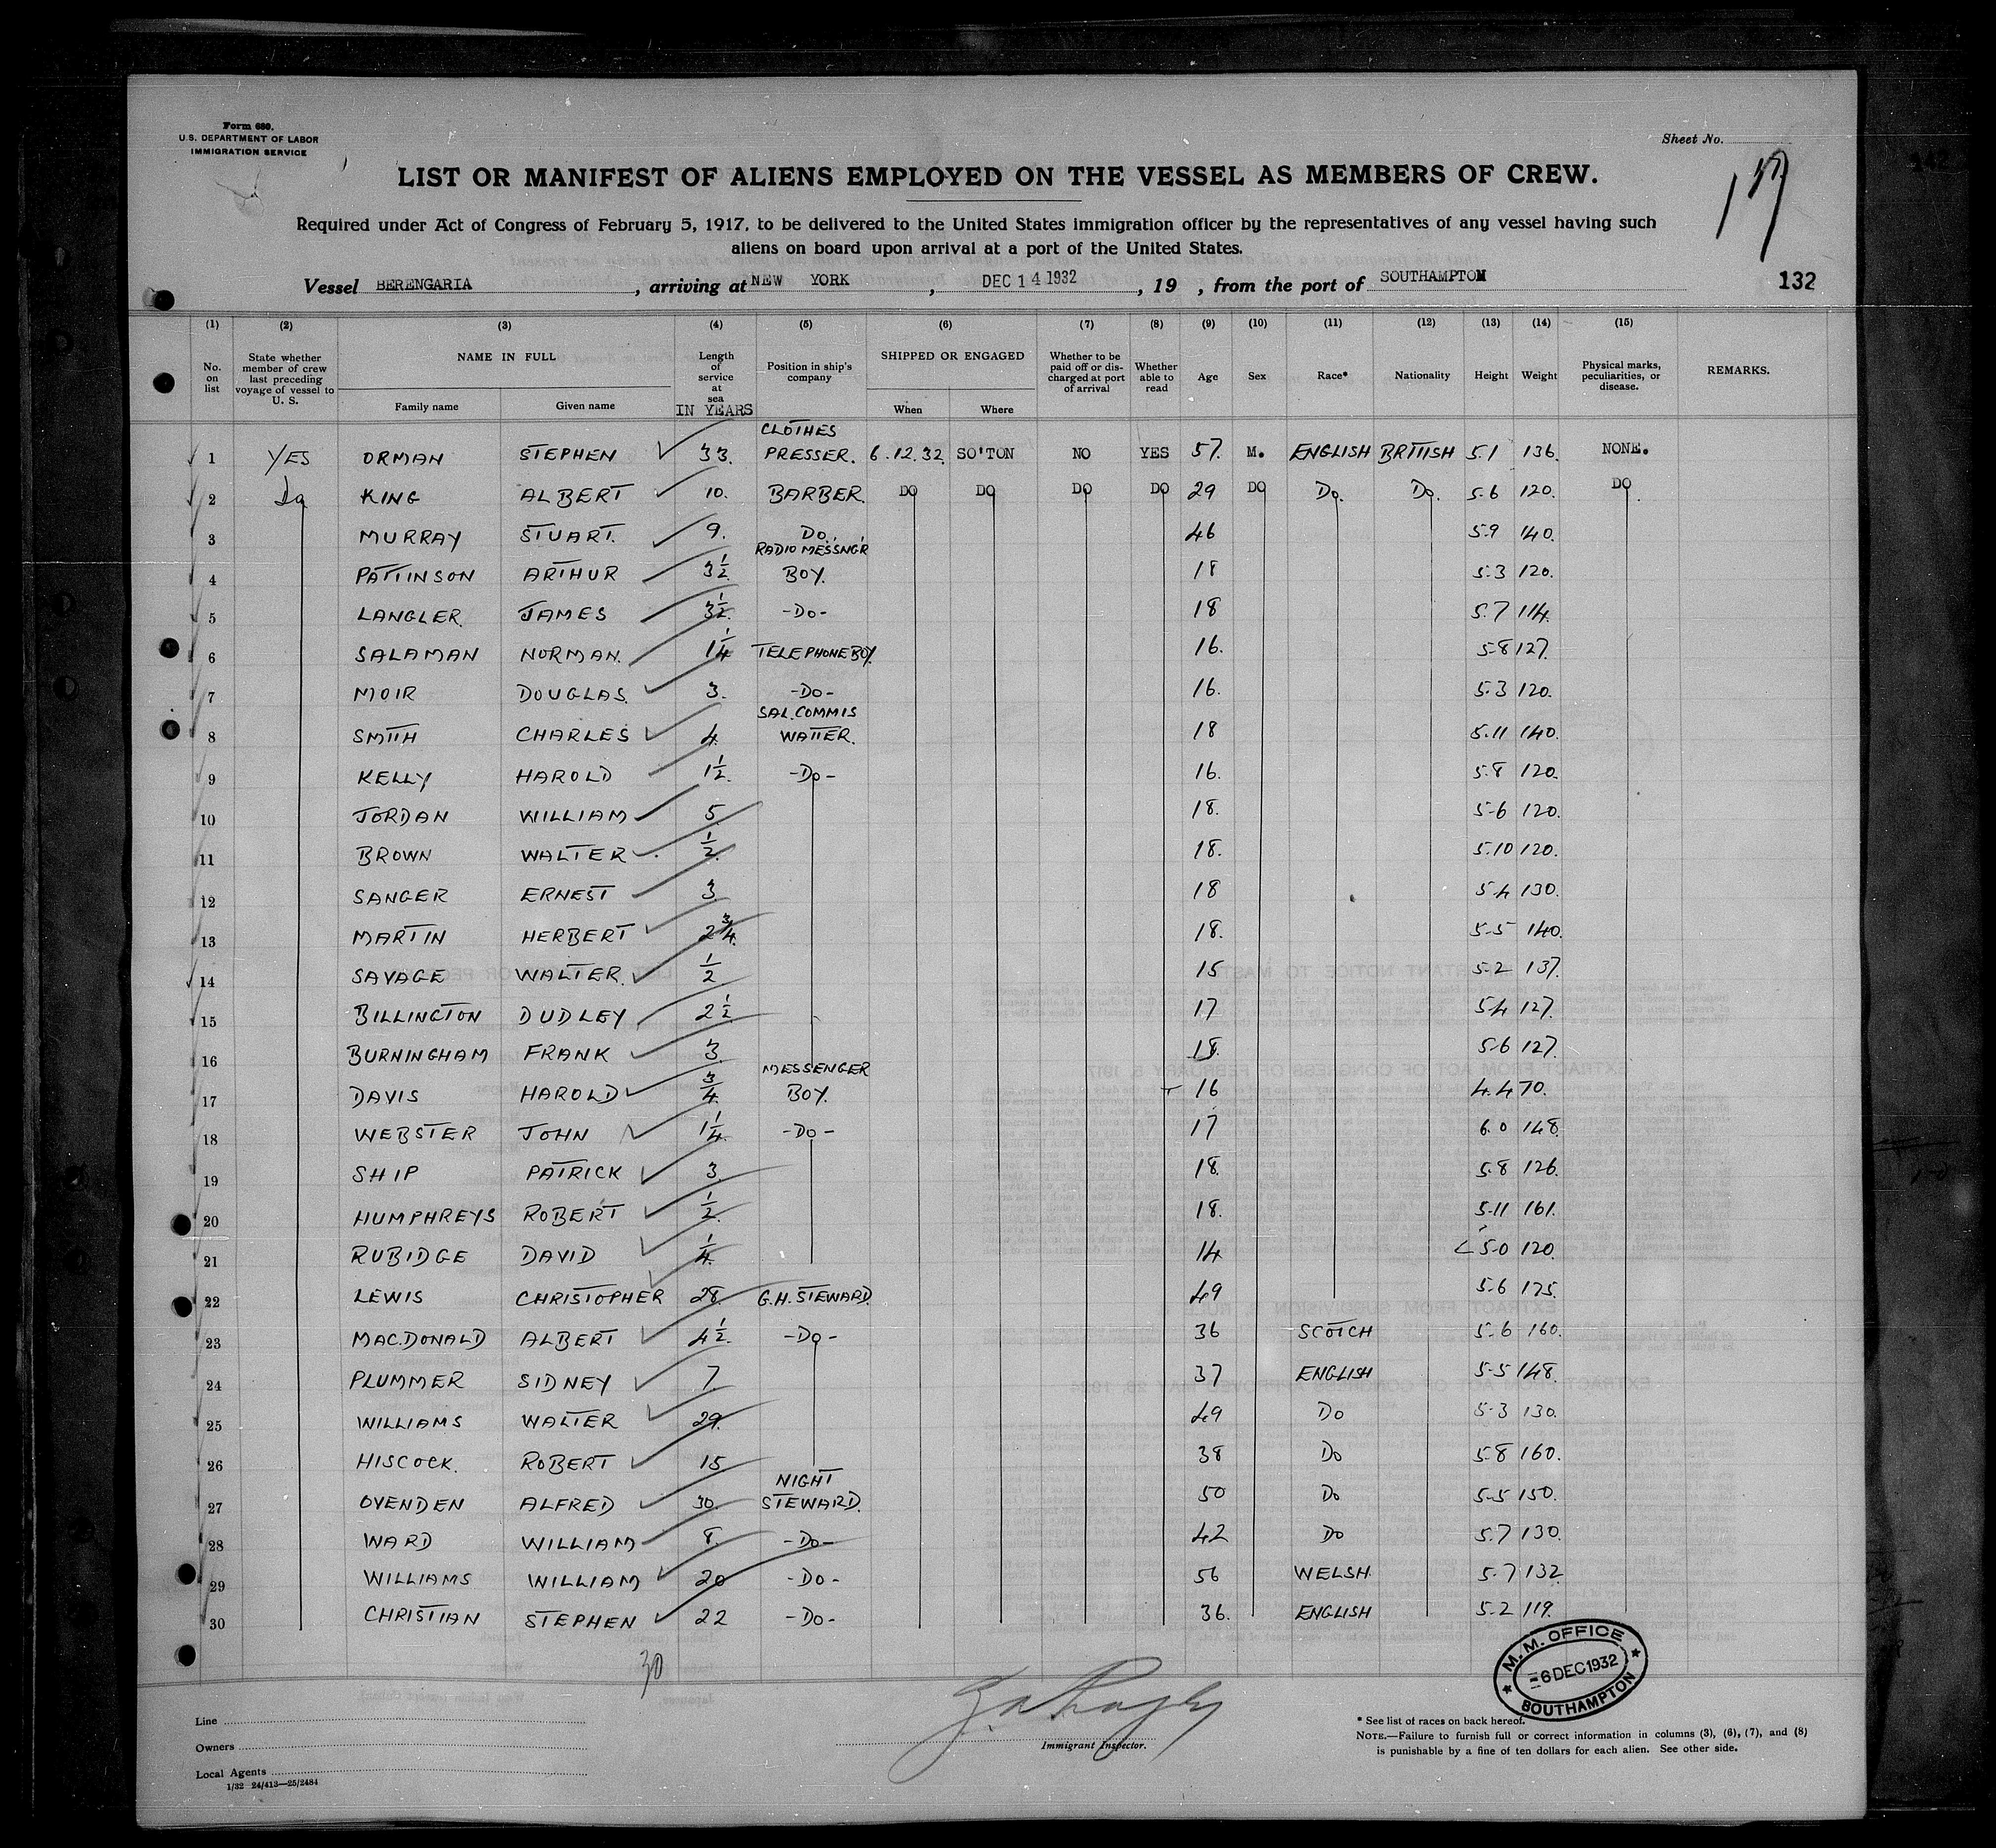 Form 680.
U.S. DEPARTMENT OF LABOR
IMMIGRATION SERVICE
Sheet No.
LIST OR MANIFEST OF ALIENS EMPLOYED ON THE VESSEL AS MEMBERS OF CREW.
Required under Act of Congress of February 5, 1917, to be delivered to the United States immigration officer by the representatives of any vessel having such
aliens on board upon arrival at a port of the United States.
Vessel BERENGARIA, arriving at NEW YORK, DEC 14 1932, 19 , from the port of SOUTHAMPTON 132
(1) (2) (3) (4) (5) (6) (7) (8) (9) (10) (11) (12) (13) (14) (15)
No. on list State whether member of crew last preceding voyage of vessel to U. S. NAME IN FULL Family name Given name Length of service at sea IN YEARS Position in ship's company SHIPPED OR ENGAGED When Where Whether to be paid off or discharged at port of arrival Whether able to read Age Sex Race* Nationality Height Weight Physical marks, peculiarities, or disease. REMARKS.
1 YES ORMAN STEPHEN 33. CLOTHES PRESSER. 6.12.32. SO'TON NO YES 57. M. ENGLISH BRITISH 5.1 136. NONE.
2 Do KING ALBERT 10. BARBER. DO DO DO DO 29 DO Do. Do. 5.6 120. DO.
3 MURRAY STUART. 9. Do. 46 5.9 140.
4 PATTINSON ARTHUR 3½ RADIO MESSNG'R BOY. 18 5.3 120.
5 LANGLER. JAMES 3½ -Do- 18 5.7 114.
6 SALAMAN NORMAN. 1¼ TELEPHONE BOY. 16. 5.8 127.
7 MOIR DOUGLAS. 3. -Do- 16. 5.3 120.
8 SMITH CHARLES 4 SAL. COMMIS WAITER. 18 5.11 140.
9 KELLY HAROLD 1½. -Do- 16. 5.8 120.
10 JORDAN WILLIAM 5. 18. 5.6 120.
11 BROWN WALTER ½. 18. 5.10 120.
12 SANGER ERNEST 3 18 5.4 130.
13 MARTIN HERBERT 2¾. 18. 5.5 140.
14 SAVAGE WALTER. ½ 15 5.2 137.
15 BILLINGTON DUDLEY 2½ 17 5.4 127.
16 BURNINGHAM FRANK 3. 18. 5.6 127.
17 DAVIS HAROLD ¾ MESSENGER BOY. 16 4.4 70.
18 WEBSTER JOHN 1¼ -Do- 17 6.0 148.
19 SHIP PATRICK 3. 18. 5.8 126.
20 HUMPHREYS ROBERT ½. 18. 5.11 161.
21 RUBIDGE DAVID ¼. 14 5.0 120.
22 LEWIS CHRISTOPHER 28. G.H. STEWARD. 49 5.6 175.
23 MAC.DONALD ALBERT 4½. -Do- 36 SCOTCH 5.6 160.
24 PLUMMER SIDNEY 7 37 ENGLISH 5.5 148.
25 WILLIAMS WALTER 29. 49 Do 5.3 130.
26 HISCOCK. ROBERT 15 38 Do 5.8 160.
27 OVENDEN ALFRED 30. NIGHT STEWARD. 50 Do 5.5 150.
28 WARD WILLIAM 8. -Do- 42 Do 5.7 130.
29 WILLIAMS WILLIAM 20 -Do- 56 WELSH. 5.7 132
30 CHRISTIAN STEPHEN 22 -Do- 36. ENGLISH 5.2 119.
30
M. M. OFFICE
6 DEC 1932
SOUTHAMPTON
Line
Owners
Local Agents
1/32 24/413—25/2484
Immigrant Inspector.
* See list of races on back hereof.
NOTE.—Failure to furnish full or correct information in columns (3), (6), (7), and (8)
is punishable by a fine of ten dollars for each alien. See other side.